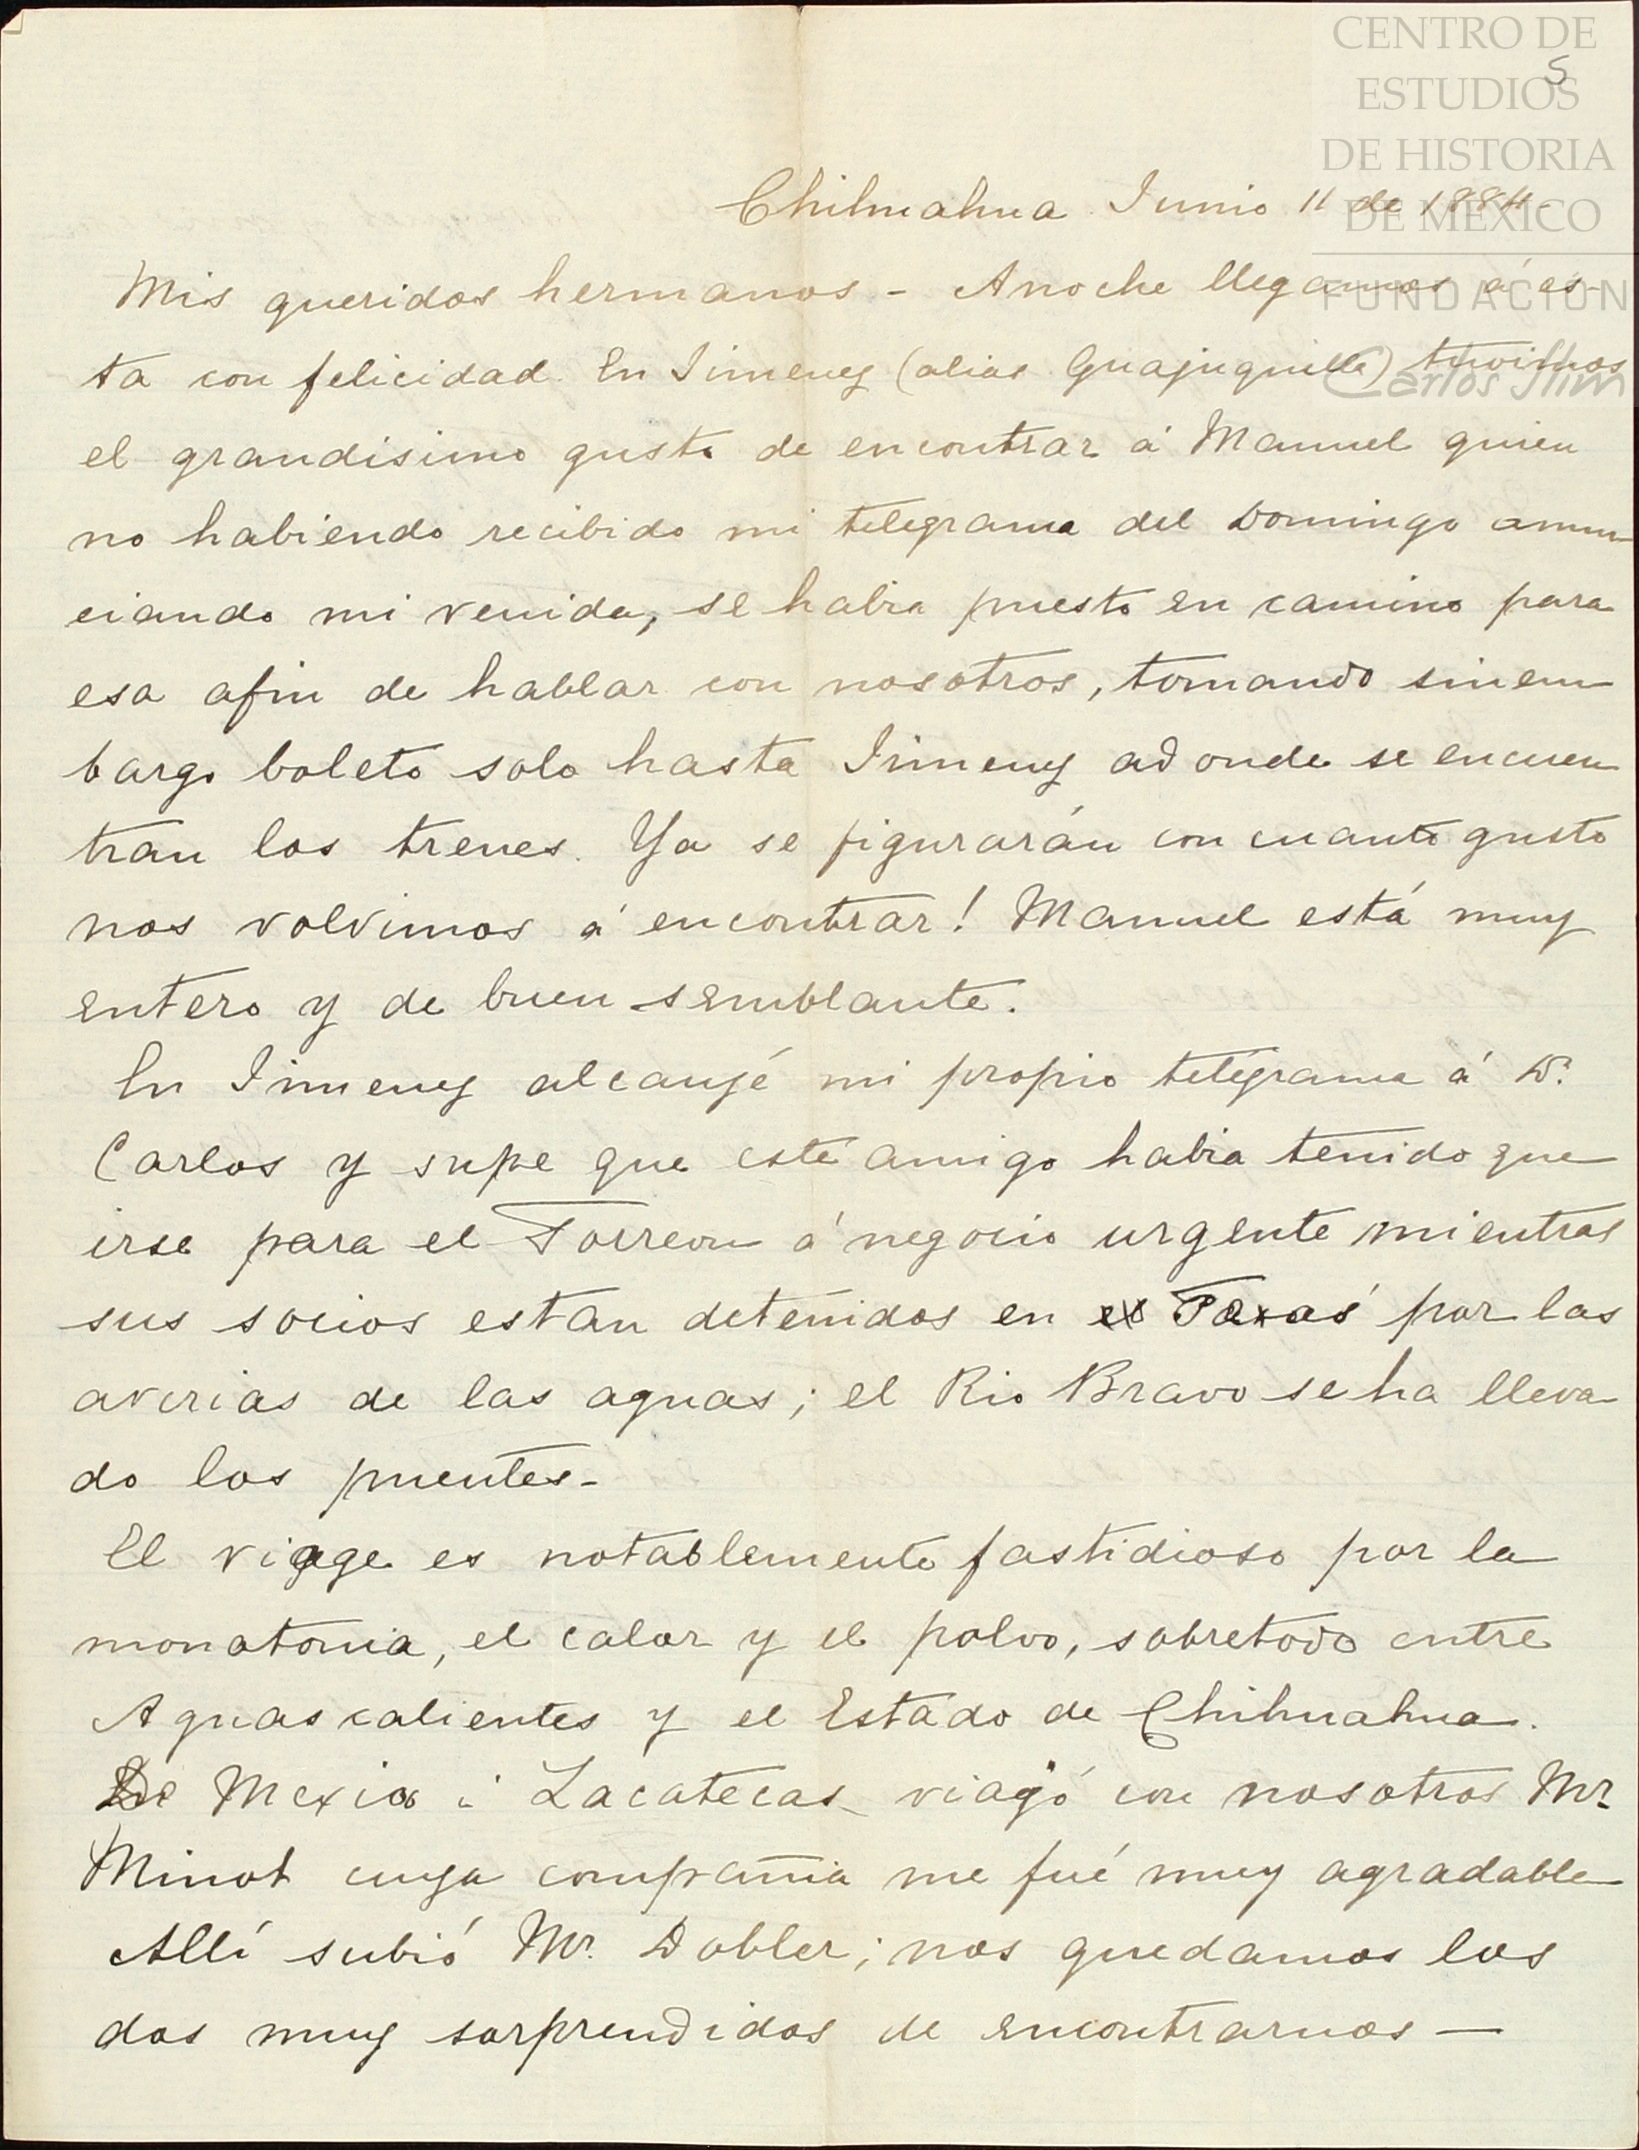 CENTRO DE
ESTUDIOS
DE HISTORIA
DE MÉXICO
FUNDACIÓN
Carlos Slim
5
Chihuahua Junio 11 de 1884-
Mis queridos hermanos - Anoche llegamos á es-
ta con felicidad. En Jimenez (alias Guajuquilla) tuvimos
el grandisimo gusto de encontrar á Manuel quien
no habiendo recibido mi telegrama del Domingo anun
ciando mi venida, se habia puesto en camino para
esa afin de hablar con nosotros, tomando sinem
bargo boleto solo hasta Jimenez adonde se encuen
tran los trenes. Ya se figurarán con cuanto gusto
nos volvimos á encontrar! Manuel está muy
entero y de buen semblante.
En Jimenez alcanzé mi propio telégrama á Dn.
Carlos y supe que este amigo habia tenido que
irse para el Torreon á negocio urgente mientras
sus socios estan detenidos en el Paxas por las
averias de las aguas; el Rio Bravo se ha lleva
do los puentes-
El viage es notablemente fastidioso por la
monotonia, el calor y el polvo, sobretodo entre
Aguascalientes y el Estado de Chihuahua.
De Mexico á Zacatecas viajó con nosotros Mr.
Minot cuya compañia me fué muy agradable
Allí subió Mr. Dobler; nos quedamos los
dos muy sorprendidos de encontrarnos —